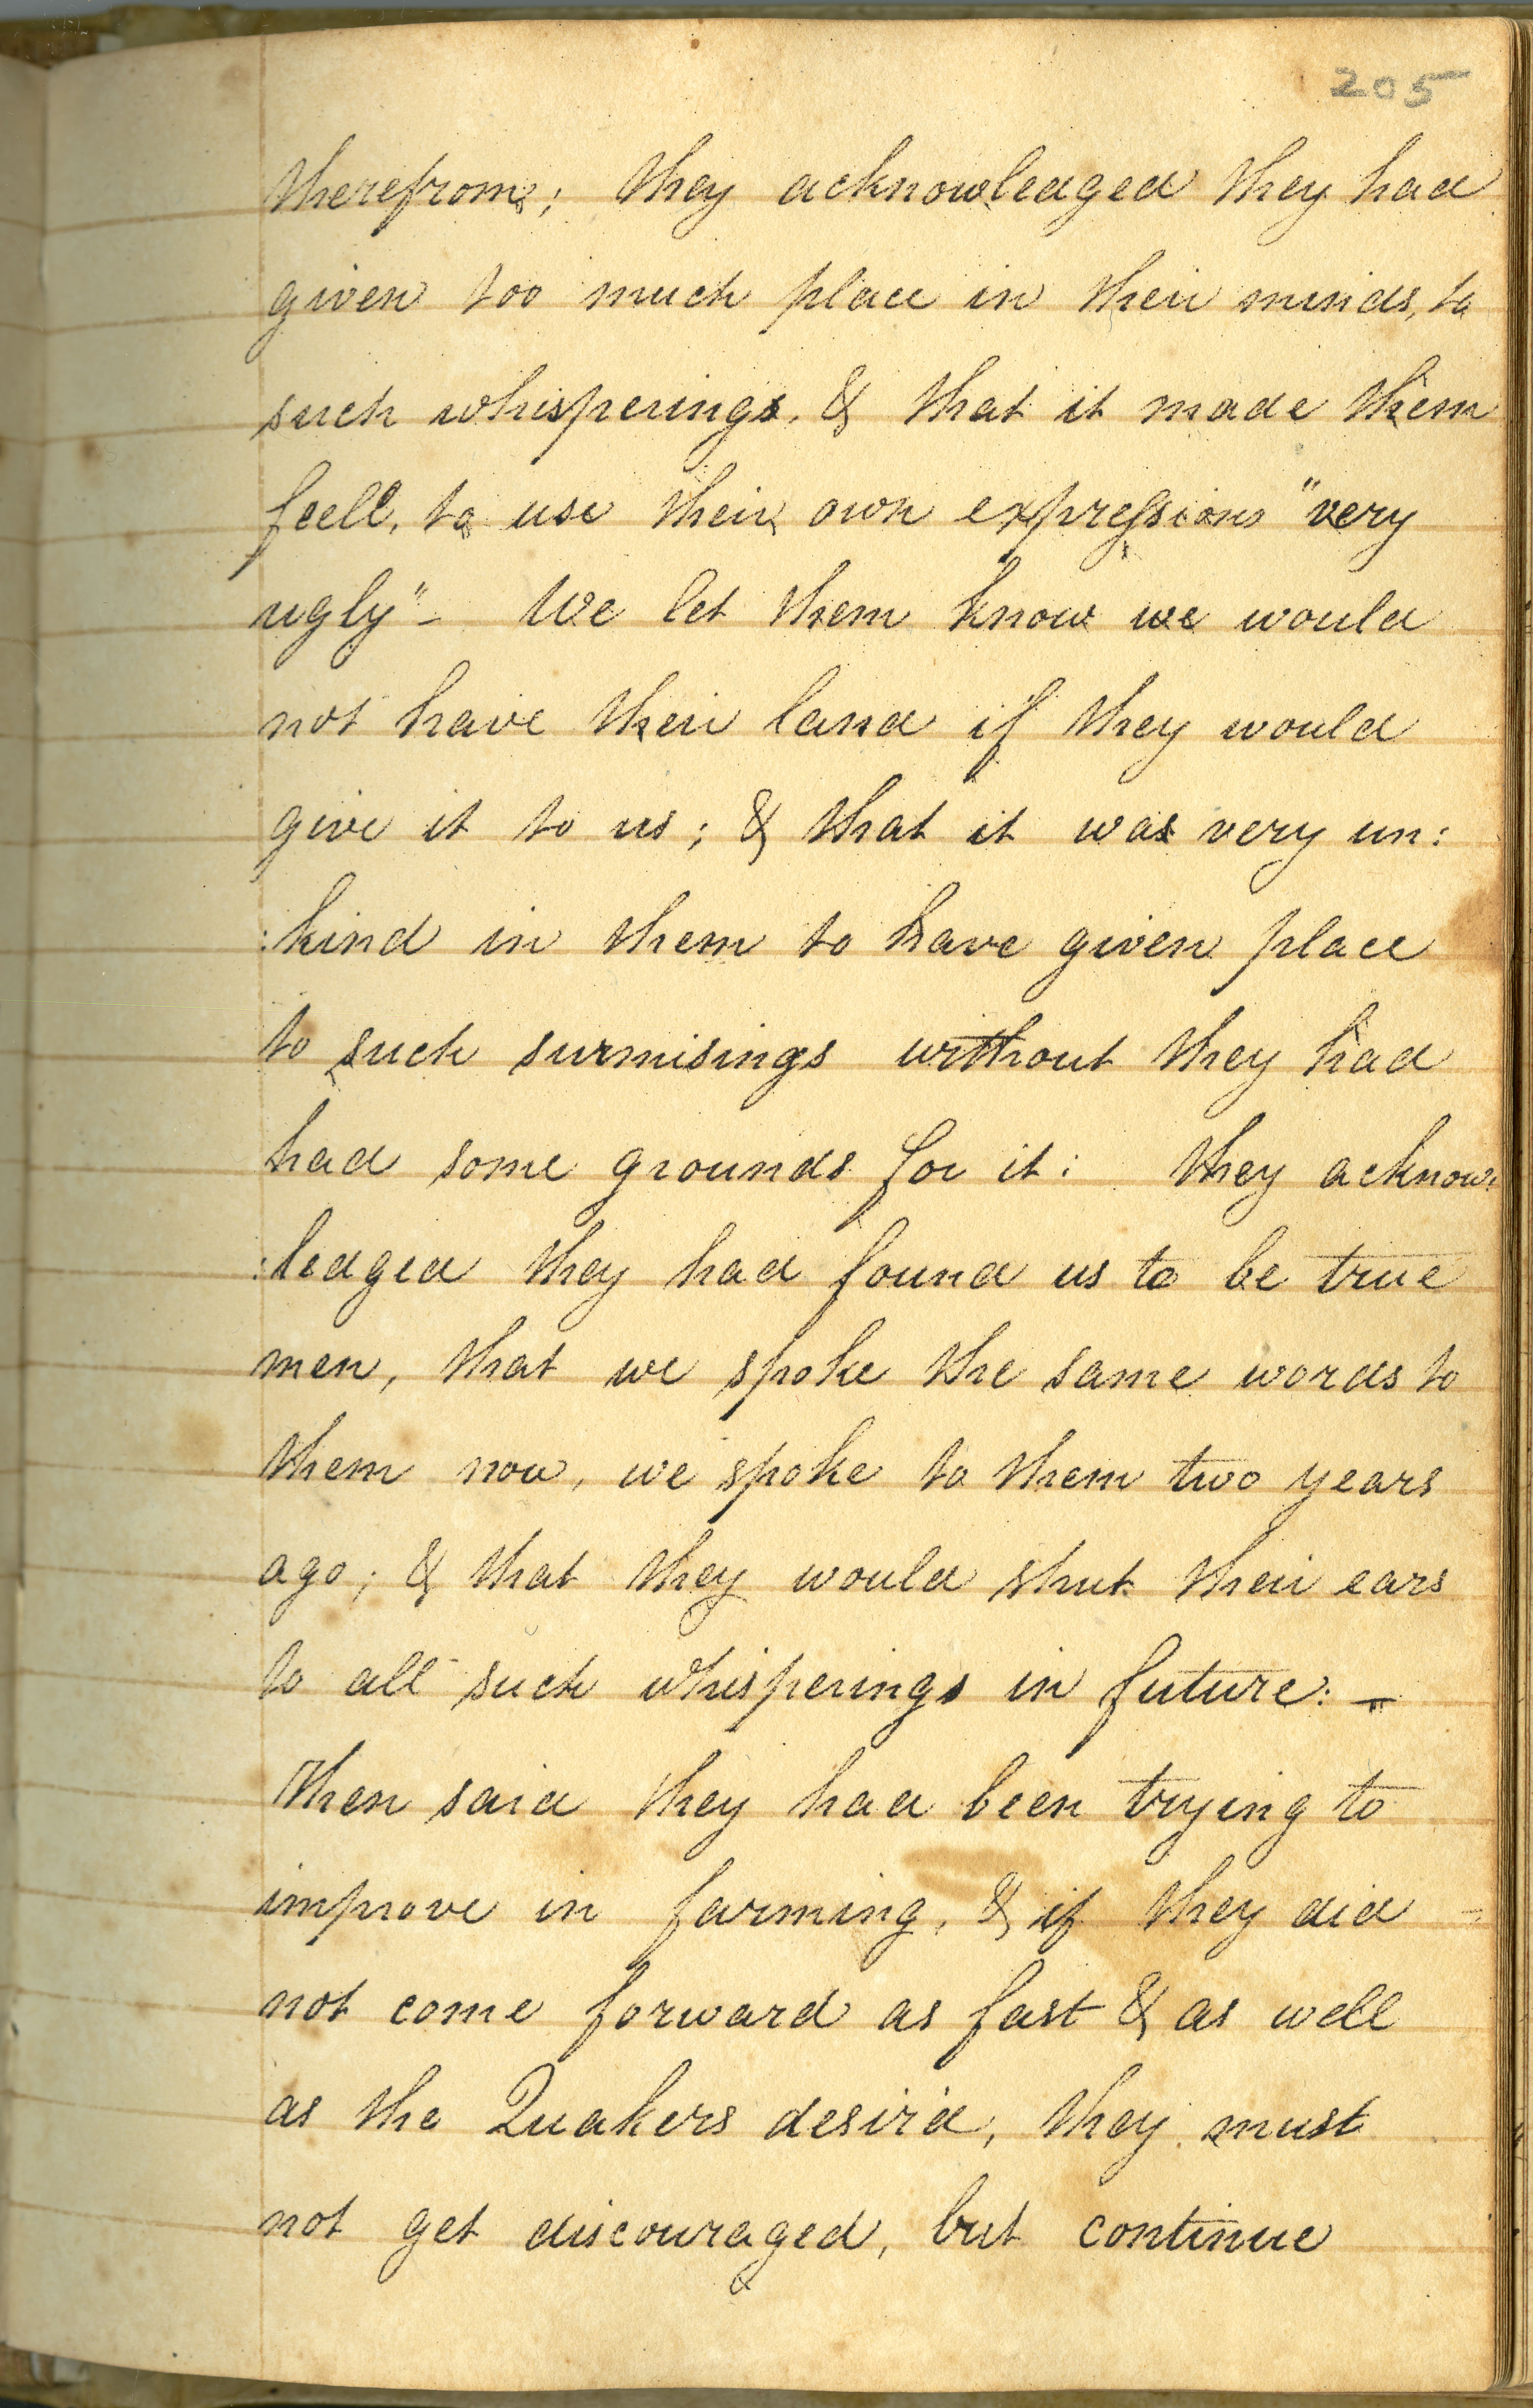 205
therefrom; they acknowledged they had
given too much place in their minds, to
such whisperings, & that it made them
feell, to use their own expressions "very
ugly" - We let them know we would
not have their land if they would
give it to us; & that it was very un:
:kind in them to have given place
to such surmisings without they had
had some grounds for it: they acknow:
:ledged they had found us to be true
men, that we spoke the same words to
them now, we spoke to them two years
ago; & that they would shut their ears
to all such whisperings in future: -
Then said they had been trying to
improve in farming, & if they did
not come forward as fast & as well
as the Quakers desir'd, they must
not get discouraged, but continue